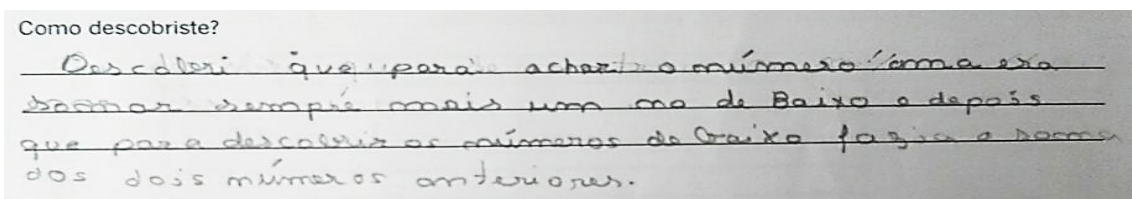 Como descobriste?
Descobri que para achar o número cima era
somar sempre mais um no de Baixo e depois
que para descobrir os números de baixo fazia a soma
dos dois números anteriores.